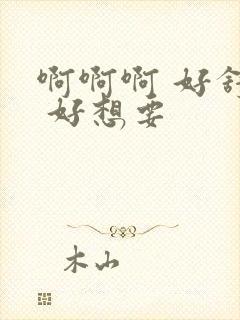 啊啊啊 好舒
好想要
木山